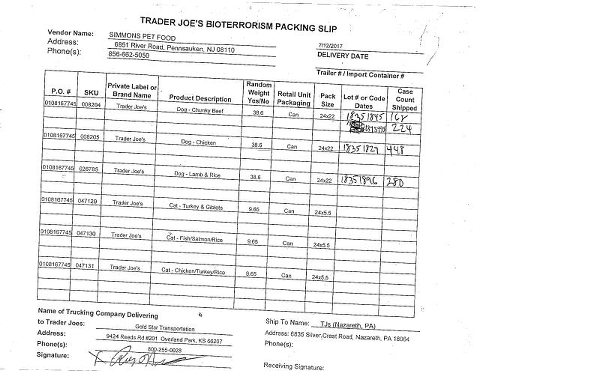 TRADER JOE'S BIOTERRORISM PACKING SLIP
Vendor Name: SIMMONS PET FOOD
Address: 6851 River Road, Pennsauken, NJ 08110
Phone(s): 856-662-5050
7/12/2017
DELIVERY DATE
Trailer # / Import Container #
P.O. # SKU Private Label or Brand Name Product Description Random Weight Yes/No Retail Unit Packaging Pack Size Lot # or Code Dates Case Count Shipped
0108167745 008204 Trader Joe's Dog - Chunky Beef 38.6 Can 24x22 18351895 168
224
0108167745 008205 Trader Joe's Dog - Chicken 38.6 Can 24x22 18351829 448
0108167745 026785 Trader Joe's Dog - Lamb & Rice 38.6 Can 24x22 18351896 280
0108167745 047129 Trader Joe's Cat - Turkey & Giblets 9.65 Can 24x5.5
0108167745 047130 Trader Joe's Cat - Fish/Salmon/Rice 9.65 Can 24x5.5
0108167745 047131 Trader Joe's Cat - Chicken/Turkey/Rice 9.65 Can 24x5.5
Name of Trucking Company Delivering
to Trader Joes: Gold Star Transportation
Address: 9424 Reeds Rd #201 Overland Park, KS 66207
Phone(s): 800-255-0028
Signature:
Ship To Name: TJs (Nazareth, PA)
Address: 6835 Silver Crest Road, Nazareth, PA 18064
Phone(s):
Receiving Signature: